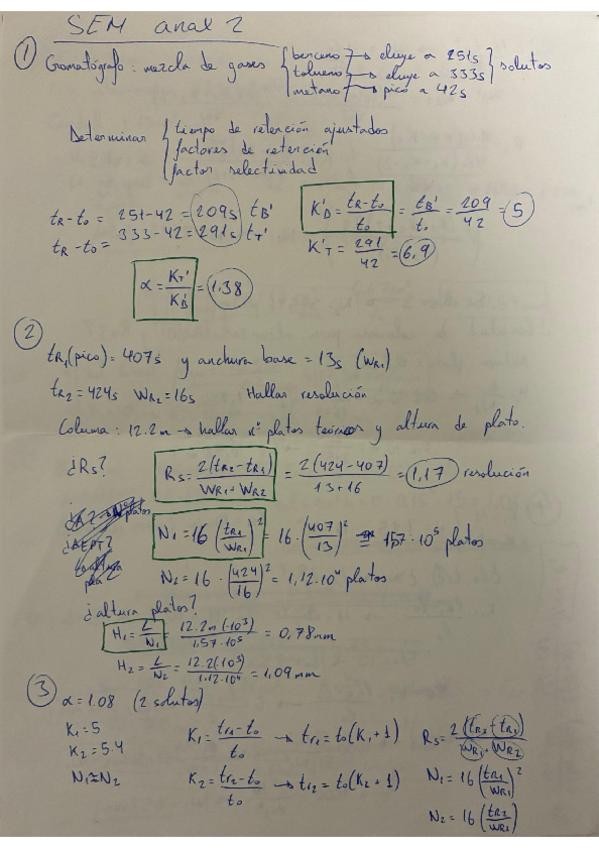 SEM anal 2
① Cromatógrafo: mezcla de gases { benceno → eluye a 251s
tolueno → eluye a 333s } solutos
metano → pico a 42s
Determinar { tiempo de retención ajustados
factores de retención
factor selectividad
tR-t0 = 251-42 = 209s tB'
tR-t0 = 333-42 = 291s tT'
K'B = (tR-t0)/t0 = tB'/t0 = 209/42 = 5
K'T = 291/42 = 6,9
α = KT'/KB' = 1,38
② tR1(pico) = 407s y anchura base = 13s (WR1)
tR2 = 424s WR2 = 16s Hallar resolución
Columa: 12.2m → hallar nº platos teóricos y altura de plato.
¿Rs? Rs = 2(tR2-tR1)/(WR1+WR2) = 2(424-407)/(13+16) = 1,17 resolución
N1 = 16 (tR1/WR1)² = 16·(407/13)² = 1,57·10⁵ platos
N2 = 16·(424/16)² = 1,12·10⁴ platos
¿altura platos?
H1 = L/N1 = 12.2m(·10³)/1,57·10⁵ = 0,78mm
H2 = L/N2 = 12.2(10³)/1.12·10⁴ = 1,09mm
③ α = 1.08 (2 solutos)
K1 = 5
K2 = 5.4
N1 ≅ N2
K1 = (tr1-t0)/t0 → tr1 = t0(K1+1)
K2 = (tr2-t0)/t0 → tr2 = t0(K2+1)
Rs = 2(tR2+tR1)/(WR1+WR2)
N1 = 16 (tR1/WR1)²
N2 = 16 (tR2/WR2)